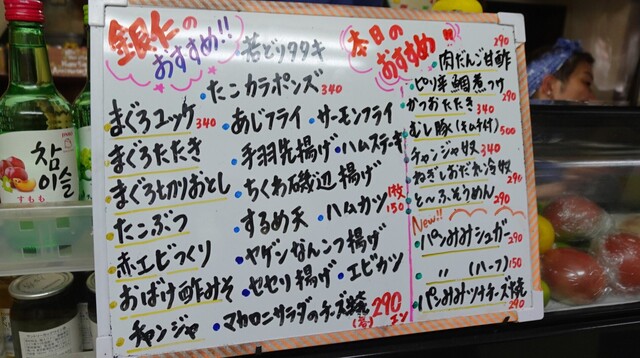 銀仁の
おすすめ!!
若どりタタキ
・たこカラポンズ 340
まぐろユッケ 340
・あじフライ ・サーモンフライ
まぐろたたき
・手羽先揚げ ・ハムステーキ
まぐろ切りおとし
・ちくわ磯辺揚げ
たこぶつ
・するめ天 ・ハムカツ 1枚150
赤エビつくり
・ヤゲンなんこつ揚げ
おばけ酢みそ
・セセリ揚げ ・エビカツ
チャンジャ
・マカロニサラダのチーズ焼 290エン
本日の
おすすめ
肉だんご甘酢 290
ピリ辛鯛煮つけ 290
かつおたたき 340
むし豚(キムチ付) 500
チャンジャ奴 340
ねぎしおだれ冷奴 290
とーふそうめん 290
New!!
パンみみシュガー 290
〃 (ハーフ) 150
パンみみツナチーズ焼 290
참이슬
すもも